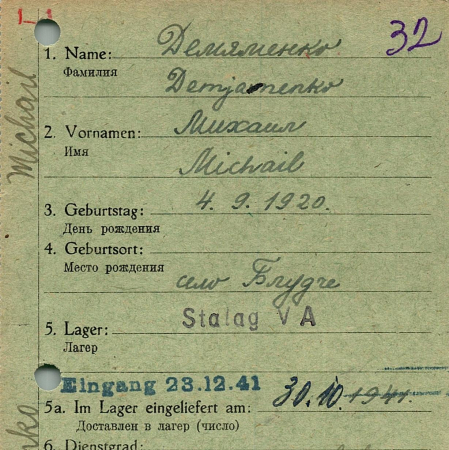 32
1. Name: Демяменко
Фамилия
Demjamenko
2. Vornamen: Михаил
Имя
Michail
3. Geburtstag: 4. 9. 1920.
День рождения
4. Geburtsort:
Место рождения
село Блудче
5. Lager: Stalag V A
Лагер
Eingang 23.12.41
5a. Im Lager eingeliefert am: 30.10.1941.
Доставлен в лагер (число)
6. Dienstgrad:
Michail
nko